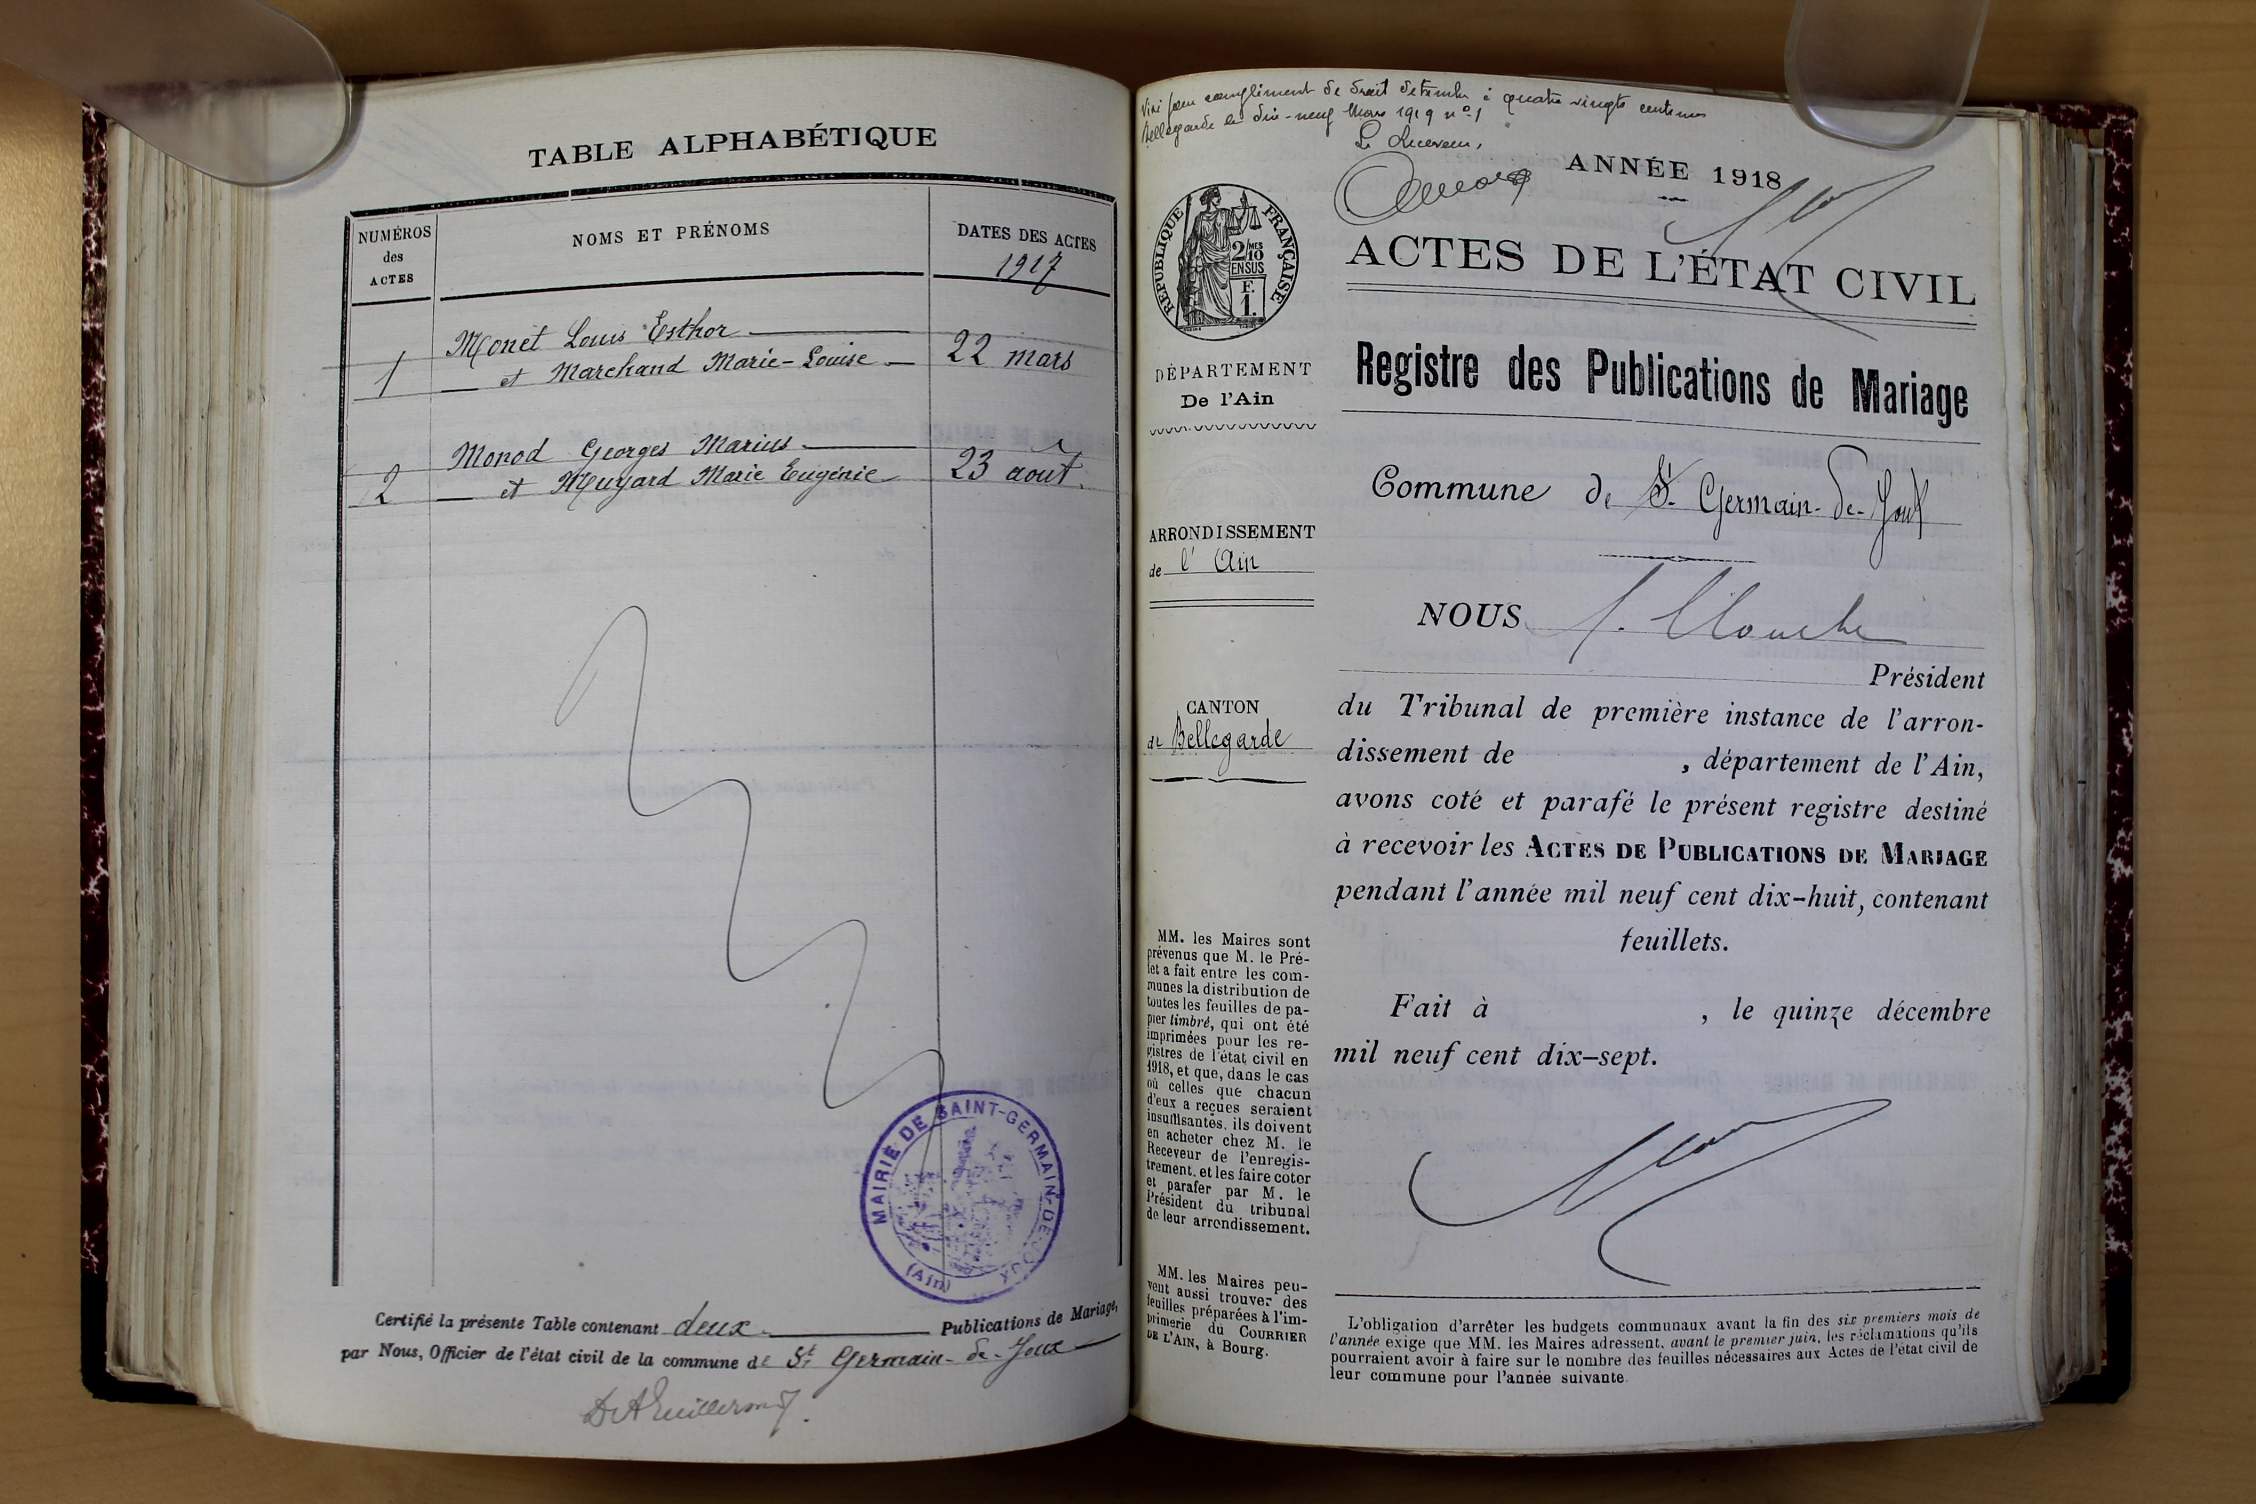 TABLE ALPHABÉTIQUE
NUMÉROS
des
ACTES
NOMS ET PRÉNOMS
DATES DES ACTES
1917
1
Monet Louis Esthor
et Marchand Marie-Louise
22 mars
2
Monod Georges Marius
et Muyard Marie Eugénie
23 août.
MAIRIE DE SAINT-GERMAIN-DE-JOUX
(Ain)
Certifié la présente Table contenant deux Publications de Mariage,
par Nous, Officier de l'état civil de la commune de St Germain-de-Joux
Visé pour complément de droit de timbre à quatre vingts centimes
Bellegarde le dix-neuf Mars 1919 n° 1
Le Receveur,
ANNÉE 1918
RÉPUBLIQUE FRANÇAISE
2/MES
10
EN SUS
F.
1.
ACTES DE L'ÉTAT CIVIL
DÉPARTEMENT
De l'Ain
ARRONDISSEMENT
de l'Ain
CANTON
de Bellegarde
MM. les Maires sont
prévenus que M. le Pré-
fet a fait entre les com-
munes la distribution de
toutes les feuilles de pa-
pier timbré, qui ont été
imprimées pour les re-
gistres de l'état civil en
1918, et que, dans le cas
où celles que chacun
d'eux a reçues seraient
insuffisantes, ils doivent
en acheter chez M. le
Receveur de l'enregis-
trement, et les faire coter
et parafer par M. le
Président du tribunal
de leur arrondissement.
MM. les Maires peu-
vent aussi trouver des
feuilles préparées à l'im-
primerie du COURRIER
DE L'AIN, à Bourg.
Registre des Publications de Mariage
Commune de St Germain-de-Joux
NOUS
Président
du Tribunal de première instance de l'arron-
dissement de , département de l'Ain,
avons coté et parafé le présent registre destiné
à recevoir les ACTES DE PUBLICATIONS DE MARIAGE
pendant l'année mil neuf cent dix-huit, contenant
feuillets.
Fait à , le quinze décembre
mil neuf cent dix-sept.
L'obligation d'arrêter les budgets communaux avant la fin des six premiers mois de
l'année exige que MM. les Maires adressent, avant le premier juin, les réclamations qu'ils
pourraient avoir à faire sur le nombre des feuilles nécessaires aux Actes de l'état civil de
leur commune pour l'année suivante